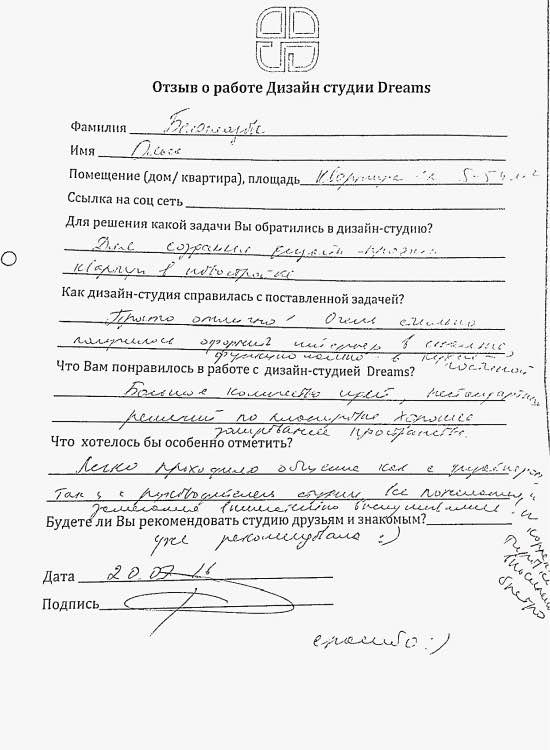 Отзыв о работе Дизайн студии Dreams
Фамилия
Имя Ольга
Помещение (дом/ квартира), площадь Квартира
Ссылка на соц сеть
Для решения какой задачи Вы обратились в дизайн-студию?
Для создания дизайн-проекта
квартиры в новостройке
Как дизайн-студия справилась с поставленной задачей?
Просто отлично! Очень стильно
получилось оформить интерьер в спальне,
функционально - в кухне-
гостиной
Что Вам понравилось в работе с дизайн-студией Dreams?
Большое количество идей, нестандартных
решений по планировке хорошее
зонирование пространства.
Что хотелось бы особенно отметить?
Легко проходило общение как с дизайнером
так и с руководителем студии. Все пожелания и
замечания внимательно выслушивались и
Будете ли Вы рекомендовать студию друзьям и знакомым?
уже рекомендовала :)
быстро
Дата 20.07.16
Подпись
спасибо :)